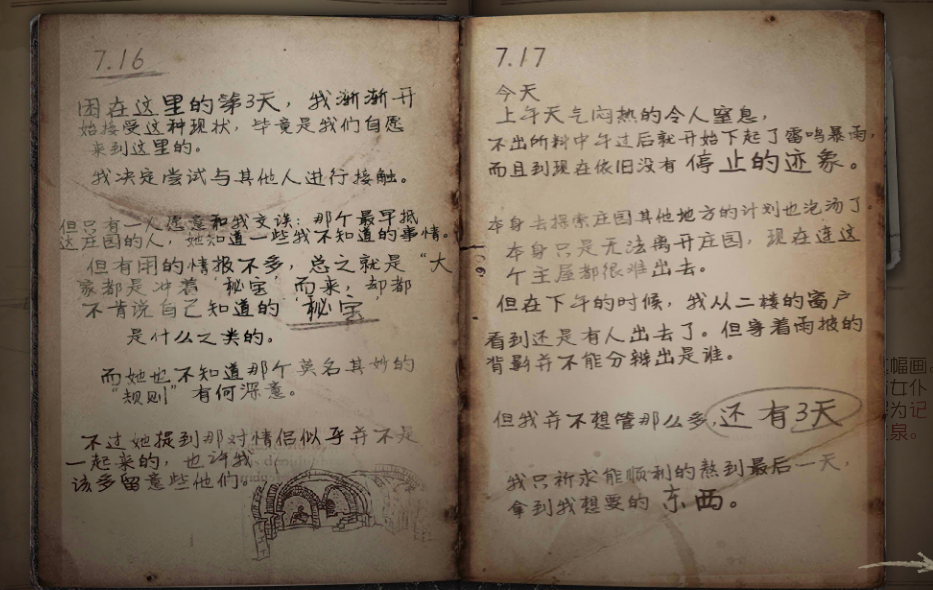 7.16
困在这里的第3天，我渐渐开
始接受这种现状，毕竟是我们自愿
来到这里的。
我决定尝试与其他人进行接触。
但只有一人愿意和我交谈：那个最早抵
达庄园的人，她知道一些我不知道的事情。
但有用的情报不多，总之就是“大
家都是冲着‘秘宝’而来，却都
不肯说自己知道的‘秘宝’
是什么之类的。
而她也不知道那个莫名其妙的
“规则”有何深意。
不过她提到那对情侣似乎并不是
一起来的，也许我
该多留意些他们。
7.17
今天
上午天气闷热的令人窒息，
不出所料中午过后就开始下起了雷鸣暴雨，
而且到现在依旧没有停止的迹象。
本身去探索庄园其他地方的计划也泡汤了。
本身只是无法离开庄园，现在连这
个主屋都很难出去。
但在下午的时候，我从二楼的窗户
看到还是有人出去了。但穿着雨披的
背影并不能分辨出是谁。
但我并不想管那么多，还有3天
我只祈求能顺利的熬到最后一天，
拿到我想要的东西。
幅画。
女仆
为记
泉。